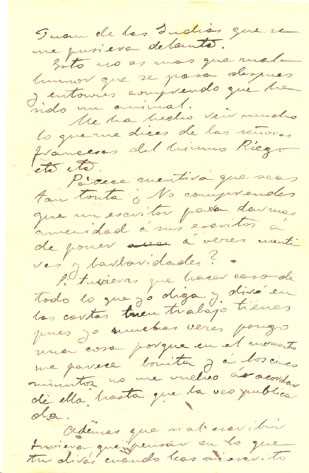 Juan de las Indias que se
me pusiera delante.
Esto no es mas que mal
humor que se pasa despues
y entonces comprendo que he
sido un animal.
Me ha hecho reir mucho
lo que me dices de las señoras
francesas del himno Riego
etc etc.
Parece mentira que seas
tan tonta ¿No comprendes
que un escritor para dar mas
amenidad á sus escritos á
de poner a veces menti
ras y barbaridades?
Si tuvieras que hacer caso de
todo lo que yo diga y diré en
las cartas buen trabajo tienes
pues yo muchas veces pongo
una cosa porque en el momento
me parece bonita y á los cinco
minutos no me vuelvo á acordar
de ella hasta que la veo publica
da.
Ademas que mal escribir
tuviera que pensar en lo que
tu dirás cuando las escrito